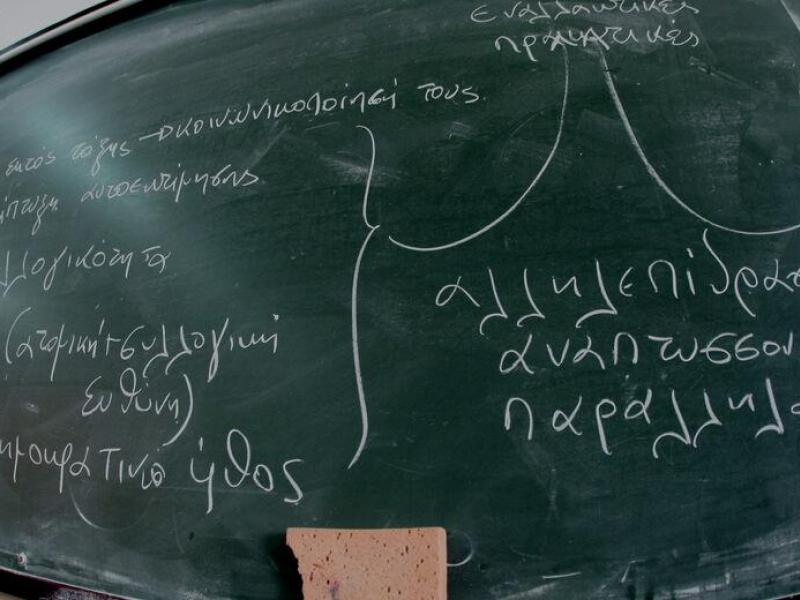 εναλλακτικές
πρακτικές
εκτός τάξης → κοινωνικοποίησή τους
άπτυξη αυτοεκτίμησης
λλογικότητα
(ατομική+συλλογική
ευθύνη)
ημοκρατικό ήθος
αλληλεπιδρατ
αναπτύσσον
παράλληλα